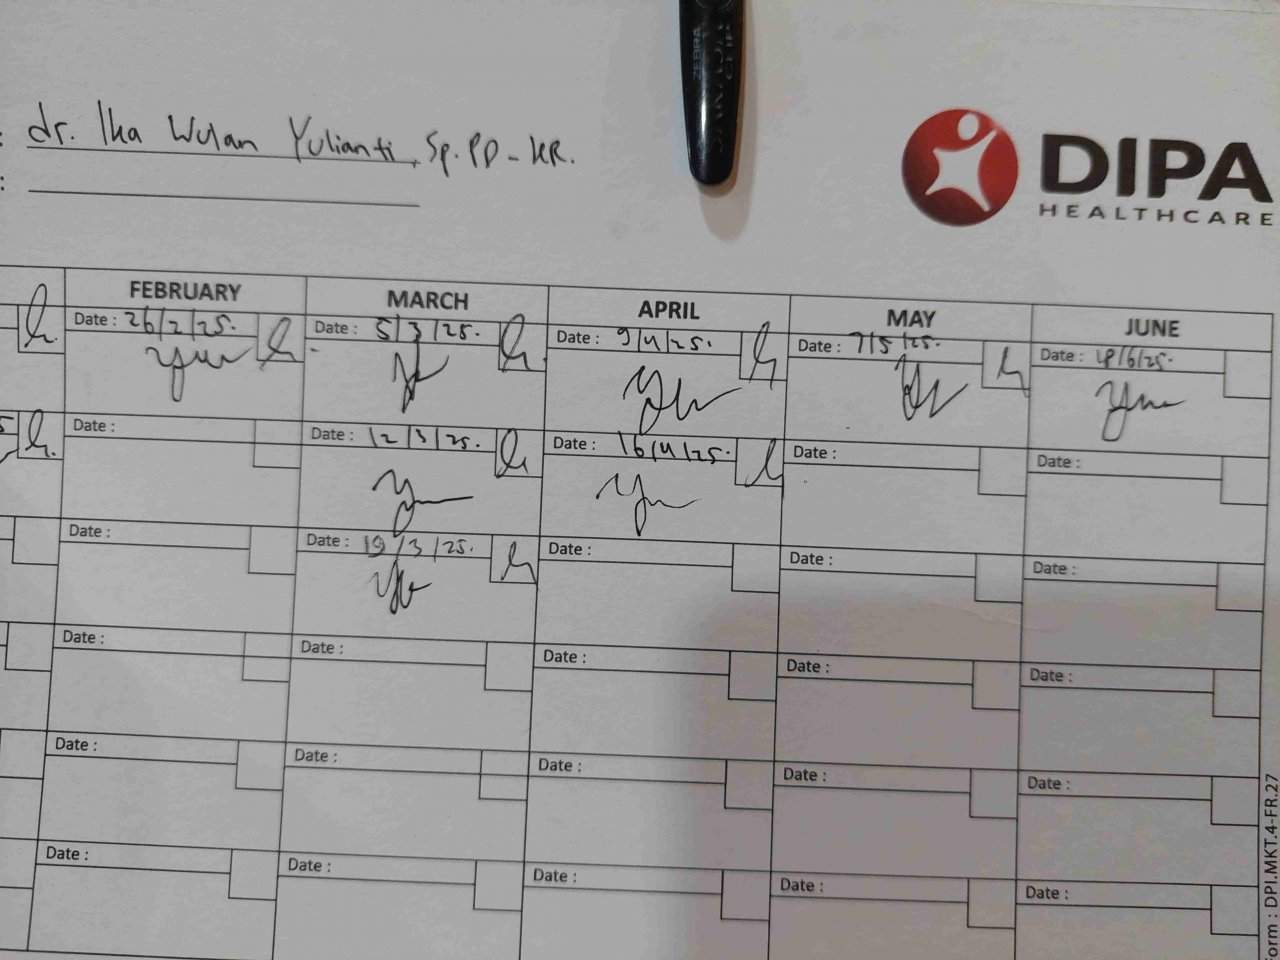 ZEBRA
: dr. Ika Wulan Yulianti, Sp.PD-KR.
:
DIPA
HEALTHCARE
FEBRUARY MARCH APRIL MAY JUNE
Date : 26/2/25. Date : 5/3/25. Date : 9/4/25. Date : 7/5/25. Date : 18/6/25.
Date : Date : 12/3/25. Date : 16/4/25. Date : Date :
Date : Date : 19/3/25. Date : Date : Date :
Date : Date : Date : Date : Date :
Date : Date : Date : Date : Date :
Date : Date : Date : Date : Date :
orm : DPI.MKT.4-FR.27